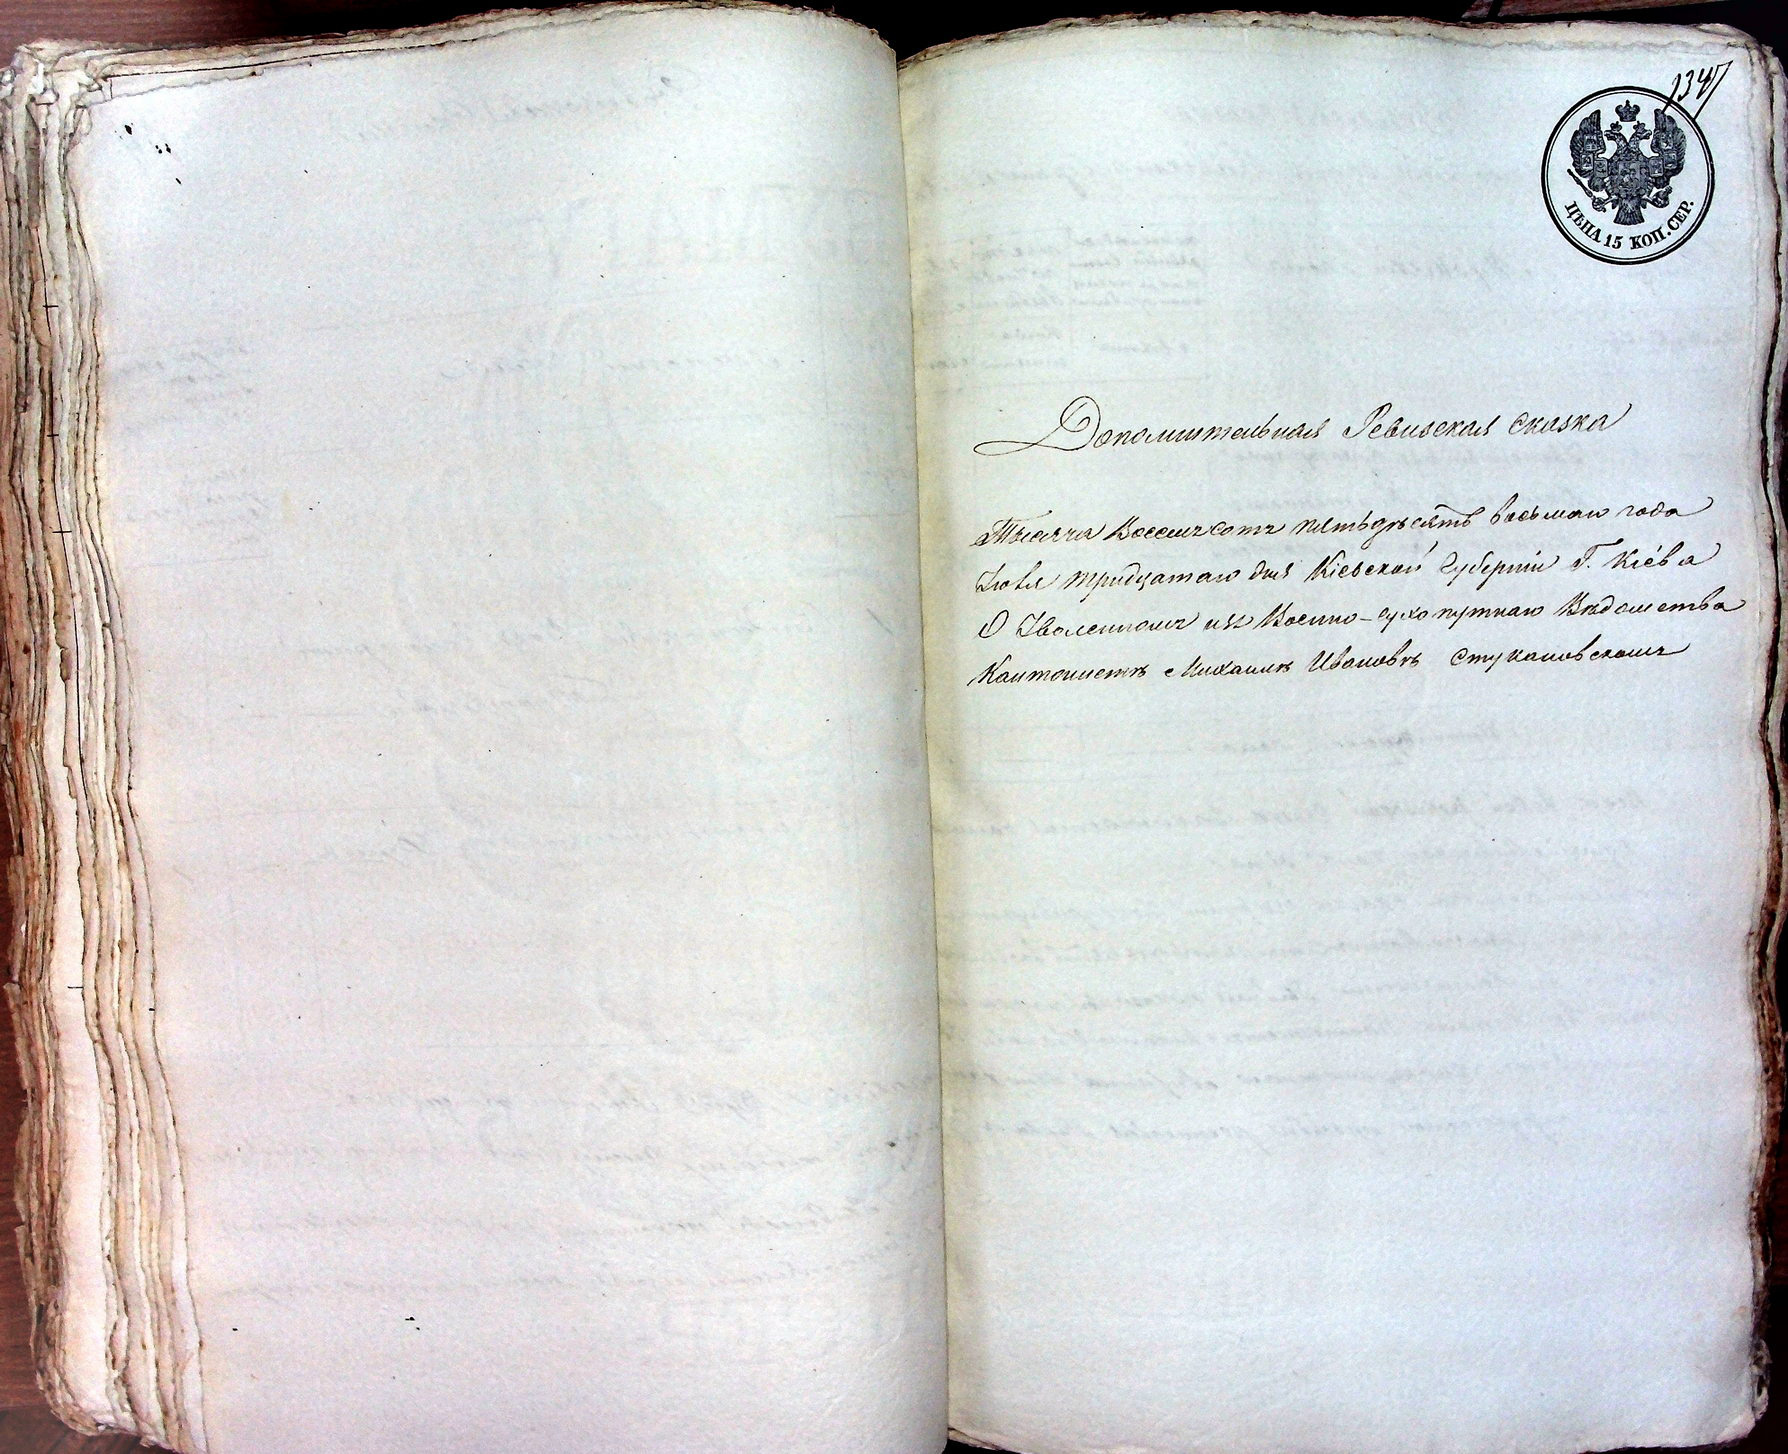 1347
ЦѢНА 15 КОП. СЕР.
Дополнительная Ревизская сказка
Тысяча Восемьсотъ пятьдесятъ восьмаго года
Іюля тридцатаго дня Кіевской Губерніи Г. Кіева
О Уволенномъ изъ Военно-сухопутнаго Вѣдомства
Кантонистѣ Михаилѣ Ивановѣ Стукановскомъ